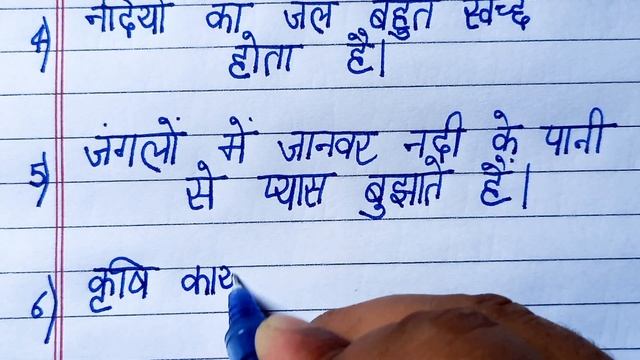 4) नदियों का जल बहुत स्वच्छ
होता है।
5) जंगलों में जानवर नदी के पानी
से प्यास बुझाते हैं।
6) कृषि